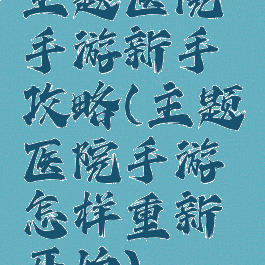 主题医院
手游新手
攻略(主题
医院手游
怎样重新
开始)